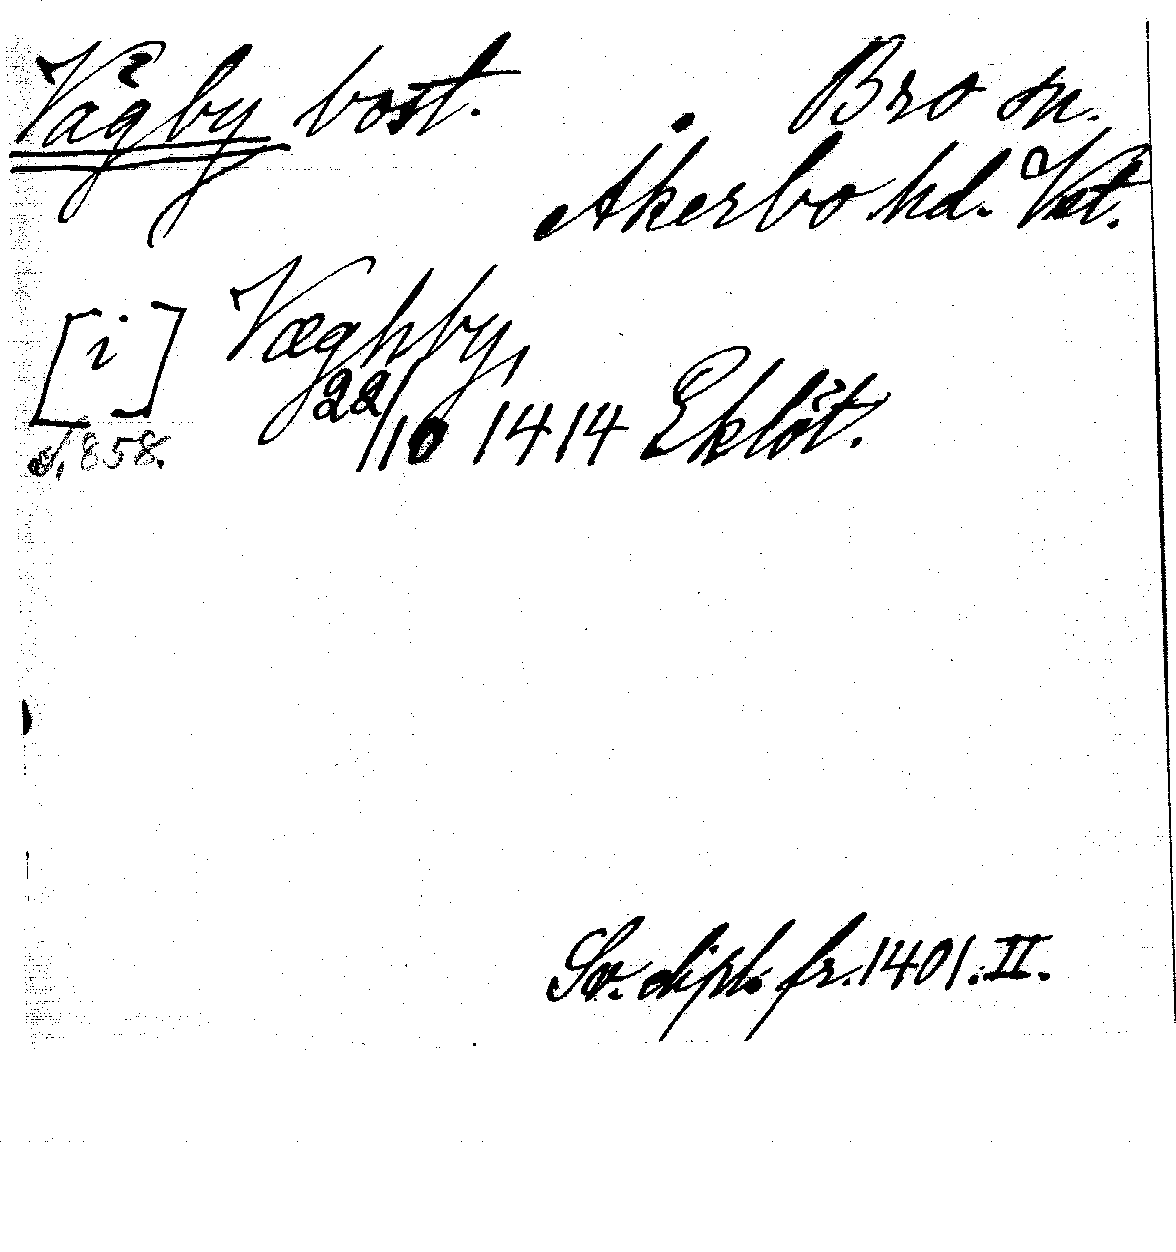 Vågby bost. Bro sn.
Åkerbo hd. Vstl.
[i] Væghby,
22/10 1414 Eklöt.
s. 858.
Sv. dipl. fr. 1401. II.